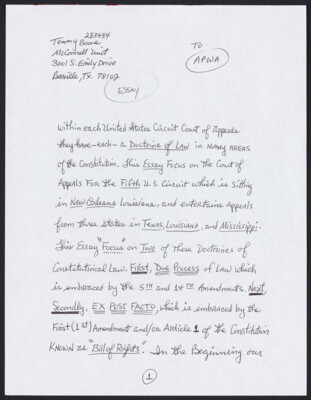 283484
Tommy Boone
McConnell Unit
3001 S. Emily Drive
Beeville, TX 78102
To
APWA
ESSAY
Within each United States Circuit Court of Appeals
they have-each-a Doctrine of Law in MANY AREAS
of the Constitution. This Essay Focus on The Court of
Appeals For the Fifth U.S. Circuit which is sitting
in New Orleans Louisiana, and entertains Appeals
from three states in Texas, Louisiana, and Mississippi.
This Essay "Focus" on Two of these Doctrines of
Constitutional Law. First, Due Process of Law which
is embraced by the 5TH and 14TH Amendments. Next,
Secondly, EX POST FACTO, which is embraced by the
First (1st) Amendment and/or Article 1 of the Constitution
KNOWN as "Bill of Rights". In the Beginning our
1